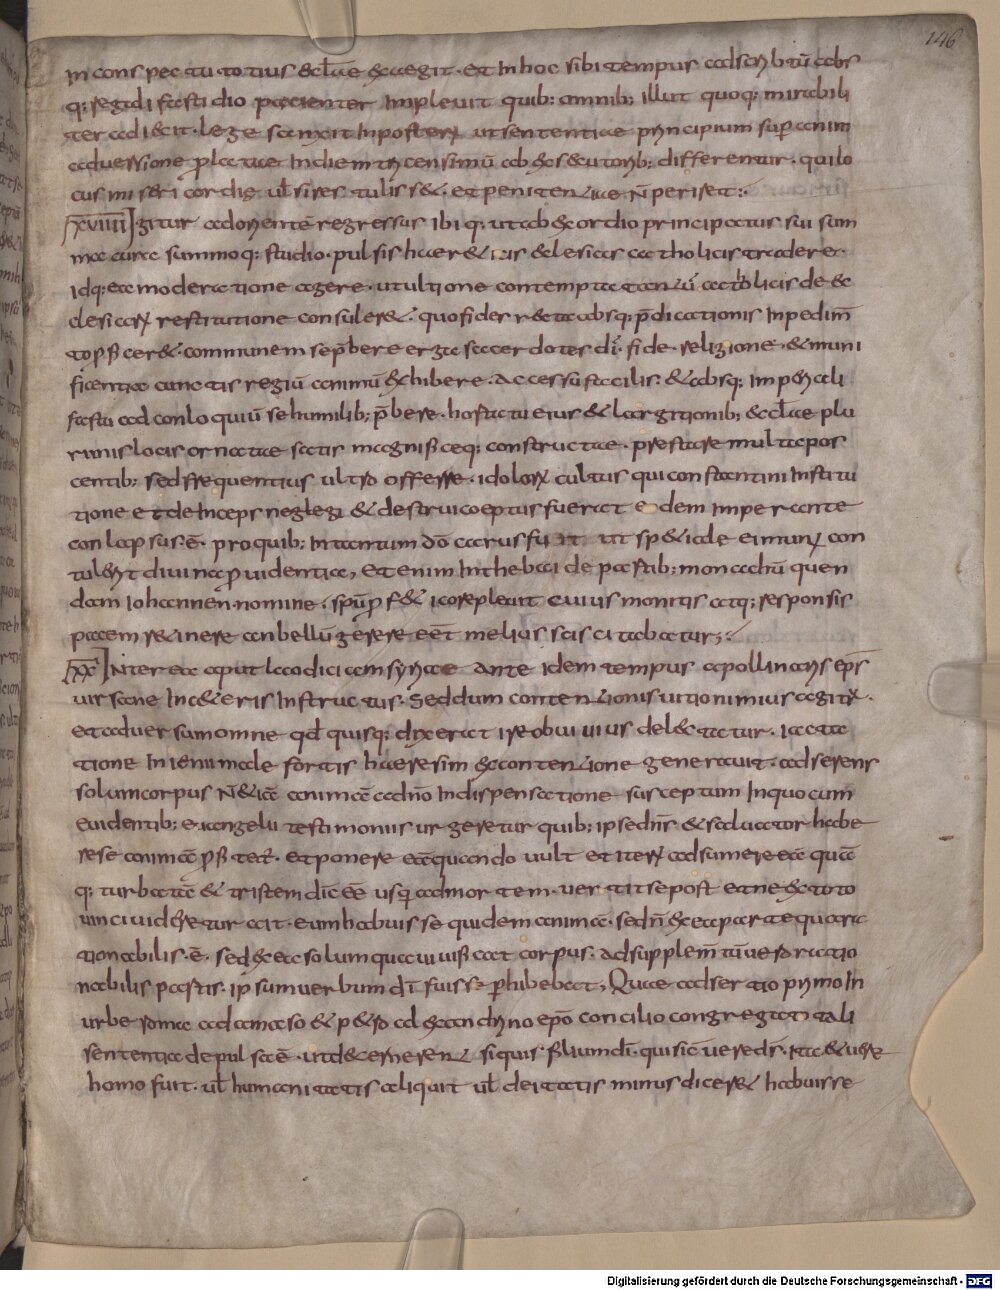 146
In conspectu totius &cl̄ae &egit. Et In hoc sibi tempus adscribtū abs
q; regali fastidio patienter Impleuit quib; omnib; illut quoq; mirabili
ter adiecit. lege sanxit In posterū ut sententiae principum sup anim
aduersione platae In diem tricensimū ab &secutorib; differentur. qui lo
cus misericordię ul̄
XXVIIII Igitur ad orientē regressus ibiq; ut ab &ordio principatus sui sum
ma cura summoq; studio. pulsis her&icis &clesias catholicis tradere.
Idq; ea moderatione agere. ut ultione contempta tantū catholicis de &
clesiarū restitutione consuler&. quo fides r&ta absq; p̄dicationis Inpedim̄
to communem se p̄bere erga sacerdotes dī. fide. religione. & muni
ficentia cunctis regiū animū &hibere. Accessū facilis. & absq; Imperiali
fastu ad conloquiū se humilib; p̄bere. hortatu eius & largitionib; &cl̄ae plu
rimis locis ornatae satis magnificeq; constructae. prestare multa pos
centib; sed frequentius ultro offerre. idolorū cultus qui constantini Institu
tione et deInceps neglegi & destrui coeptus fuerat eodem imperante
conlapsus ē. pro quib; In tantum dō carus fuit ut sp&iale ei munus con
tulerit diuina puidentia, etenim In thebaidē partib; monachū quen
dam iohannen nomine. spū pf&icorepleuit cuius monitis atq; responsis
pacem r&inere an bellū gerere eēt melius sciscitabatur;
XX Inter ea aput laodiciam syriae ante idem tempus apollinaris ep̄s
uir sane In c&eris Instructus. Sed dum contentionis uitio nimius agitur.
et aduersum omne qd quisq; dixerat ire obuiuius del&tatur. iacta
tione Ingenii male fortis haeresim &contentione generauit. adserens
solum corpus n̄ &iā animā a dn̄o In dispensatione susceptum In quo cum
euidentib; euangelii testimoniis urgeretur quib; ipse dn̄s & saluator habe
re se animā et ponere eā quando uult et iterū adsumere eā quā
q; turbatā & tristem dic eē usq; ad mortem. uertit se post ea ne &toto
uinci uideretur ait. eum habuisse quidem animā. sed n̄ &ea parte qua ra
tionabilis ē. sed &ea solum qua uiuificat corpus. ad supplem̄tū uero ratio
nabilis partis. ipsum uerbum dī fuisse phibebat, Quae adsertio primo In
urbe roma a damaso & p&ro al&andrino ep̄o concilio congregato tali
sententia depulsa ē. ut d&ernerent si quis filium dī. qui sic uere dr̄. ita &uer
homo fuit. ul̄ humanitatis aliquit ul̄ deitatis minus dicer& habuisse
Digitalisierung gefördert durch die Deutsche Forschungsgemeinschaft - DFG